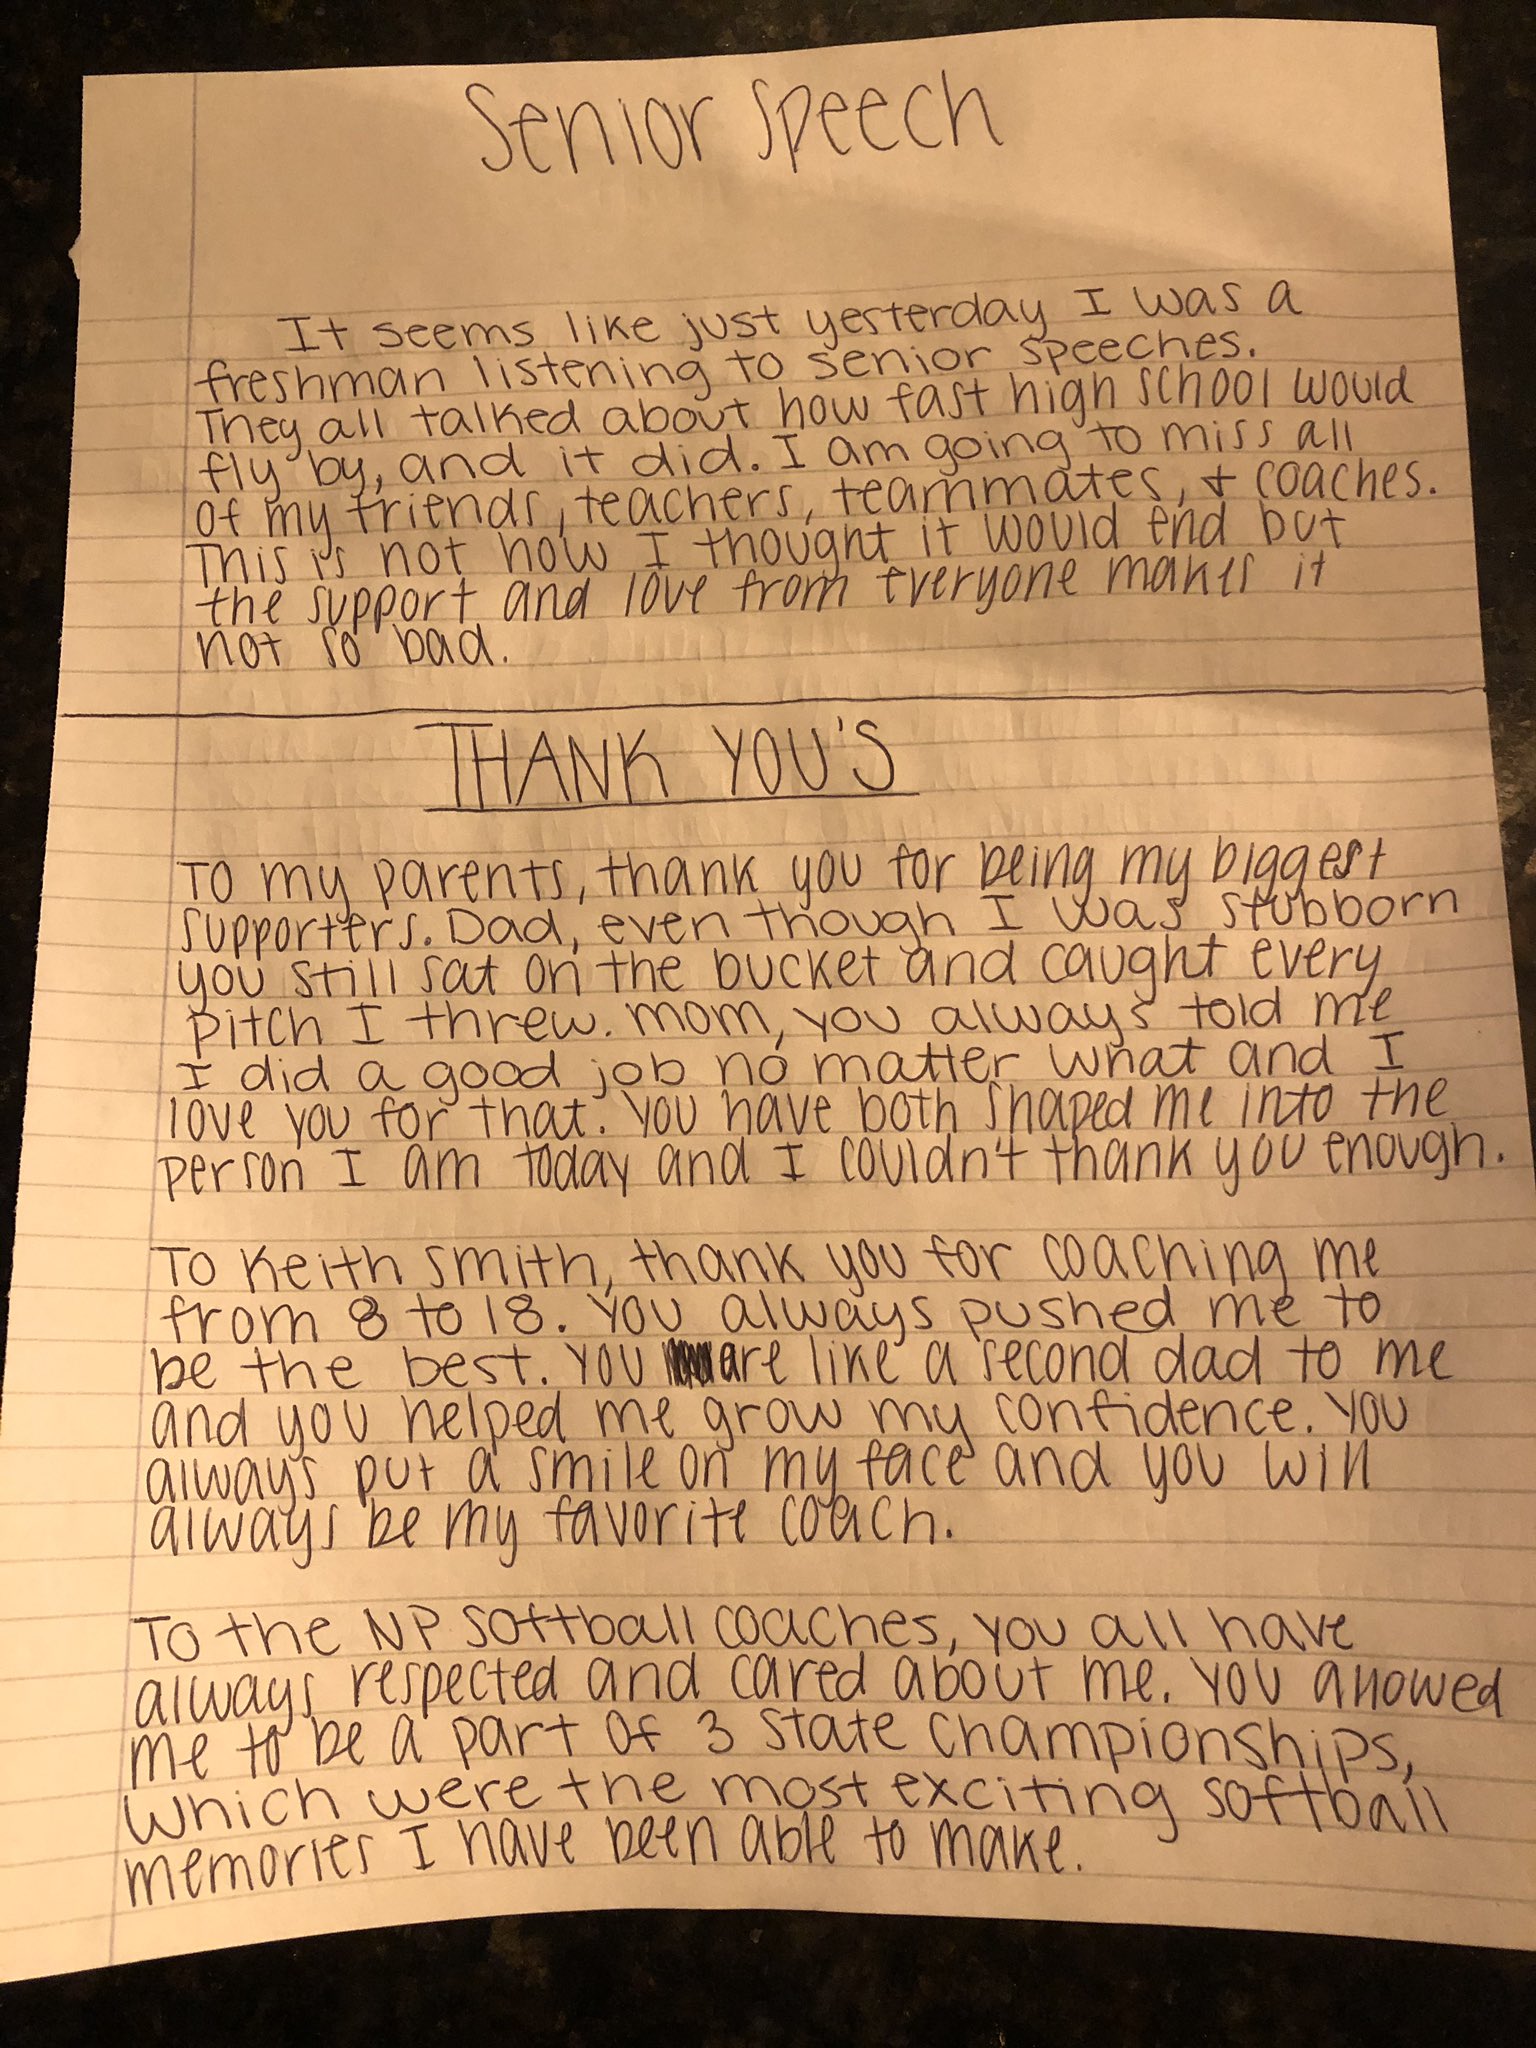 Senior Speech
It seems like just yesterday I was a
freshman listening to senior speeches.
They all talked about how fast high school would
fly by, and it did. I am going to miss all
of my friends, teachers, teammates, & coaches.
This is not how I thought it would end but
the support and love from everyone makes it
not so bad.
THANK YOU'S
To my parents, thank you for being my biggest
supporters. Dad, even though I was stubborn
you still sat on the bucket and caught every
pitch I threw. Mom, you always told me
I did a good job no matter what and I
love you for that. You have both shaped me into the
person I am today and I couldn't thank you enough.
To Keith Smith, thank you for coaching me
from 8 to 18. You always pushed me to
be the best. You are like a second dad to me
and you helped me grow my confidence. You
always put a smile on my face and you will
always be my favorite coach.
To the NP softball coaches, you all have
always respected and cared about me. You allowed
me to be a part of 3 state championships,
which were the most exciting softball
memories I have been able to make.